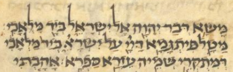 משא דבר יהוה אל ישראל ביד מלאכי
מטל פיתגמא דייי על ישרא' ביד מלאכי
דמתקרי שמיה עזרא ספרא אהבתי